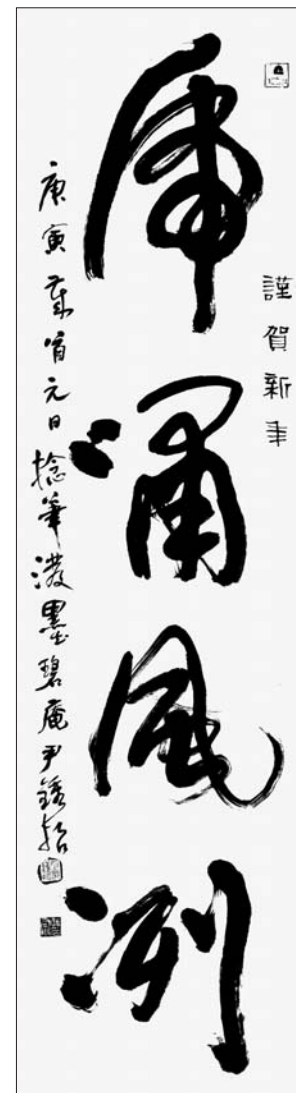 謹賀新年
虎嘯風冽
庚寅歲首元日捻筆潑墨碧庵尹